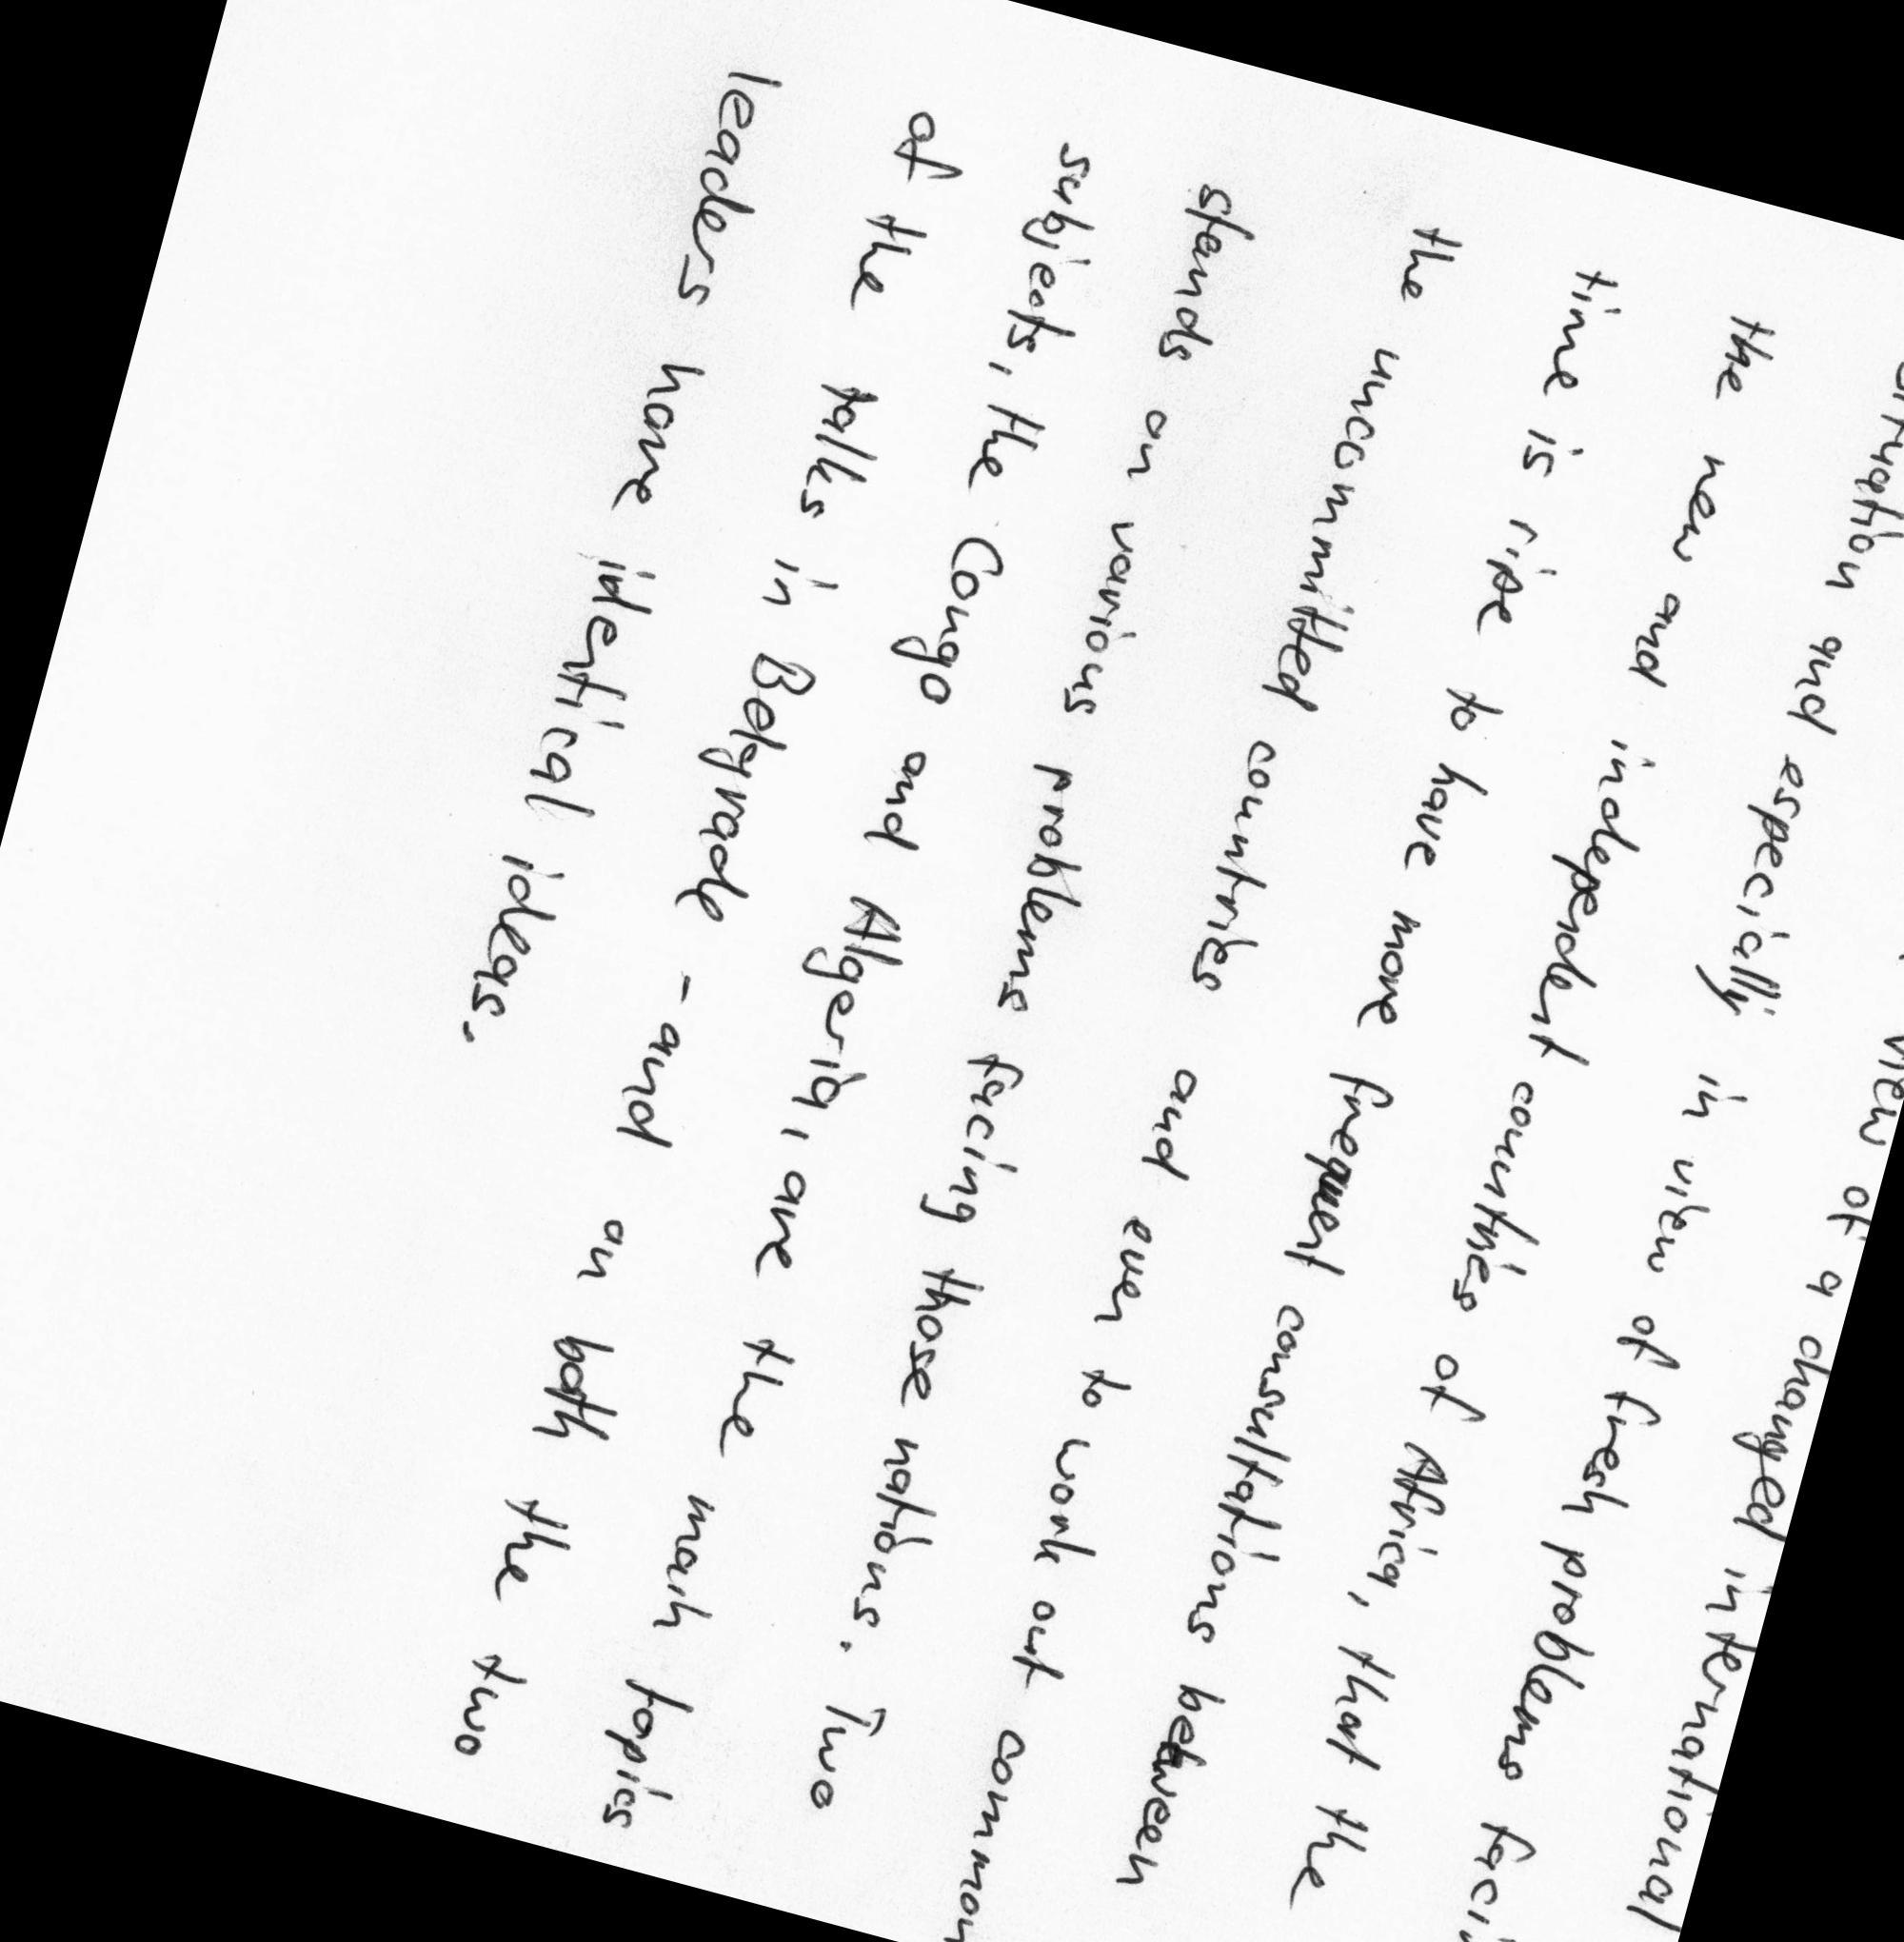 view of a changed international
situation and especially in view of fresh problems
the new and independent countries of Africa, that the
time is ripe to have more frequent consultations between
the uncommitted countries and even to work out common
stands on various problems facing those nations. Two
subjects, the Congo and Algeria, are the main topics
of the talks in Belgrade - and on both the two
leaders have identical ideas.